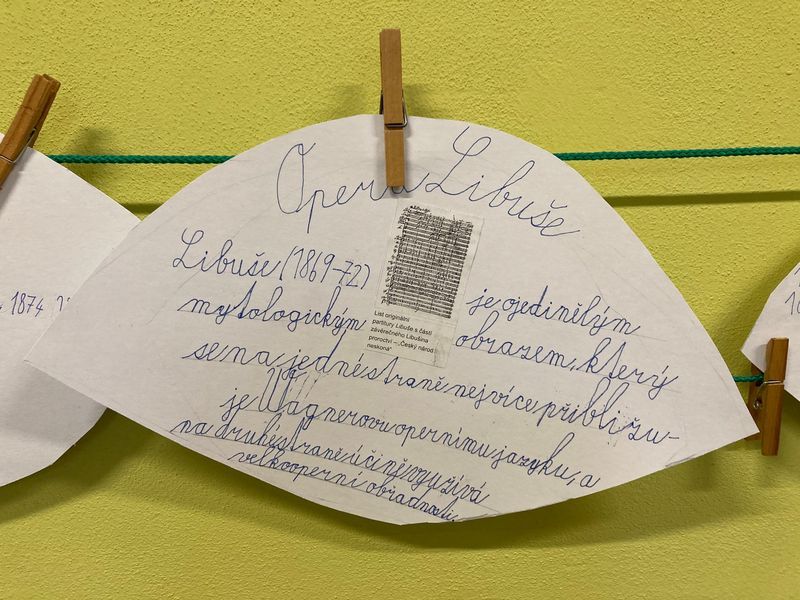 Opera Libuše
Libuše (1869-72) je ojedinělým
mytologickým obrazem, který
se na jedné straně nejvíce přibližu-
je Wagnerovu opernímu jazyku, a
na druhé straně účině využívá
velkooperní obřadnosti.
List originální
partitury Libuše s částí
závěrečného Libušina
proroctví – „Český národ
neskoná"
1874